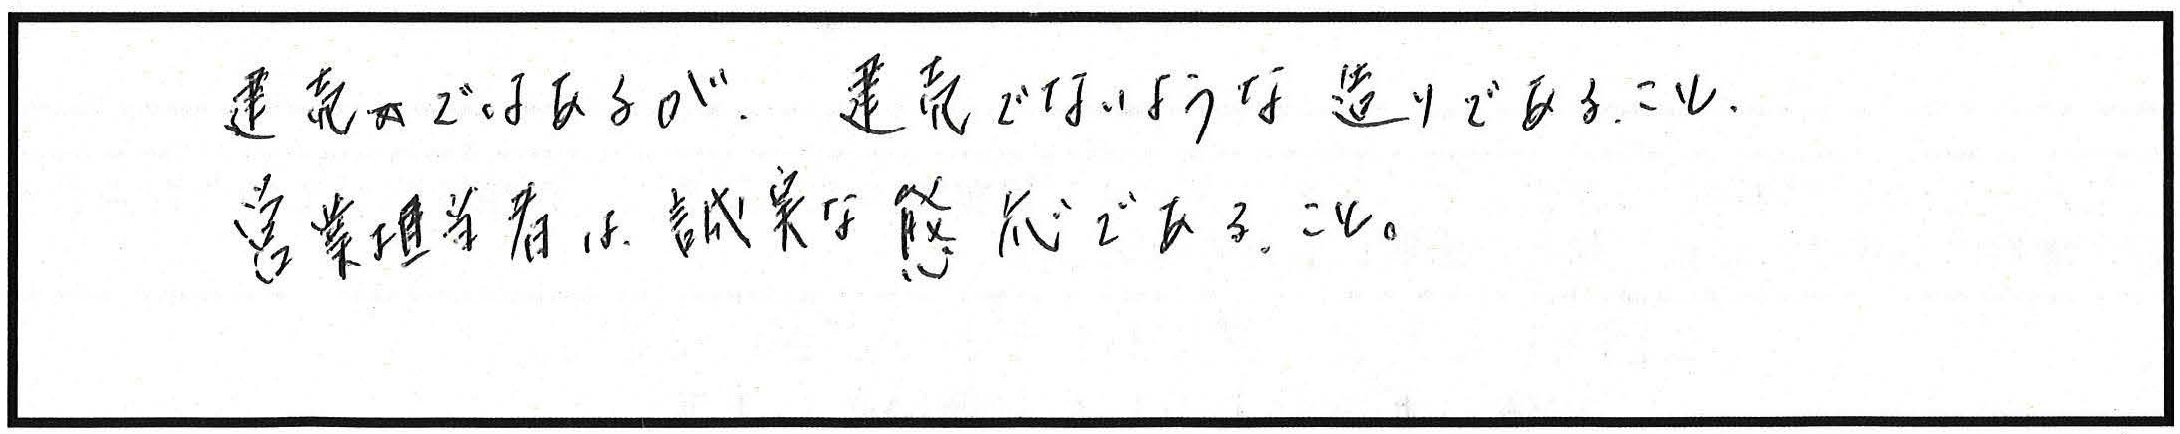 建売ではあるが、建売でないような造りであること、
営業担当者は、誠実な態応であること。